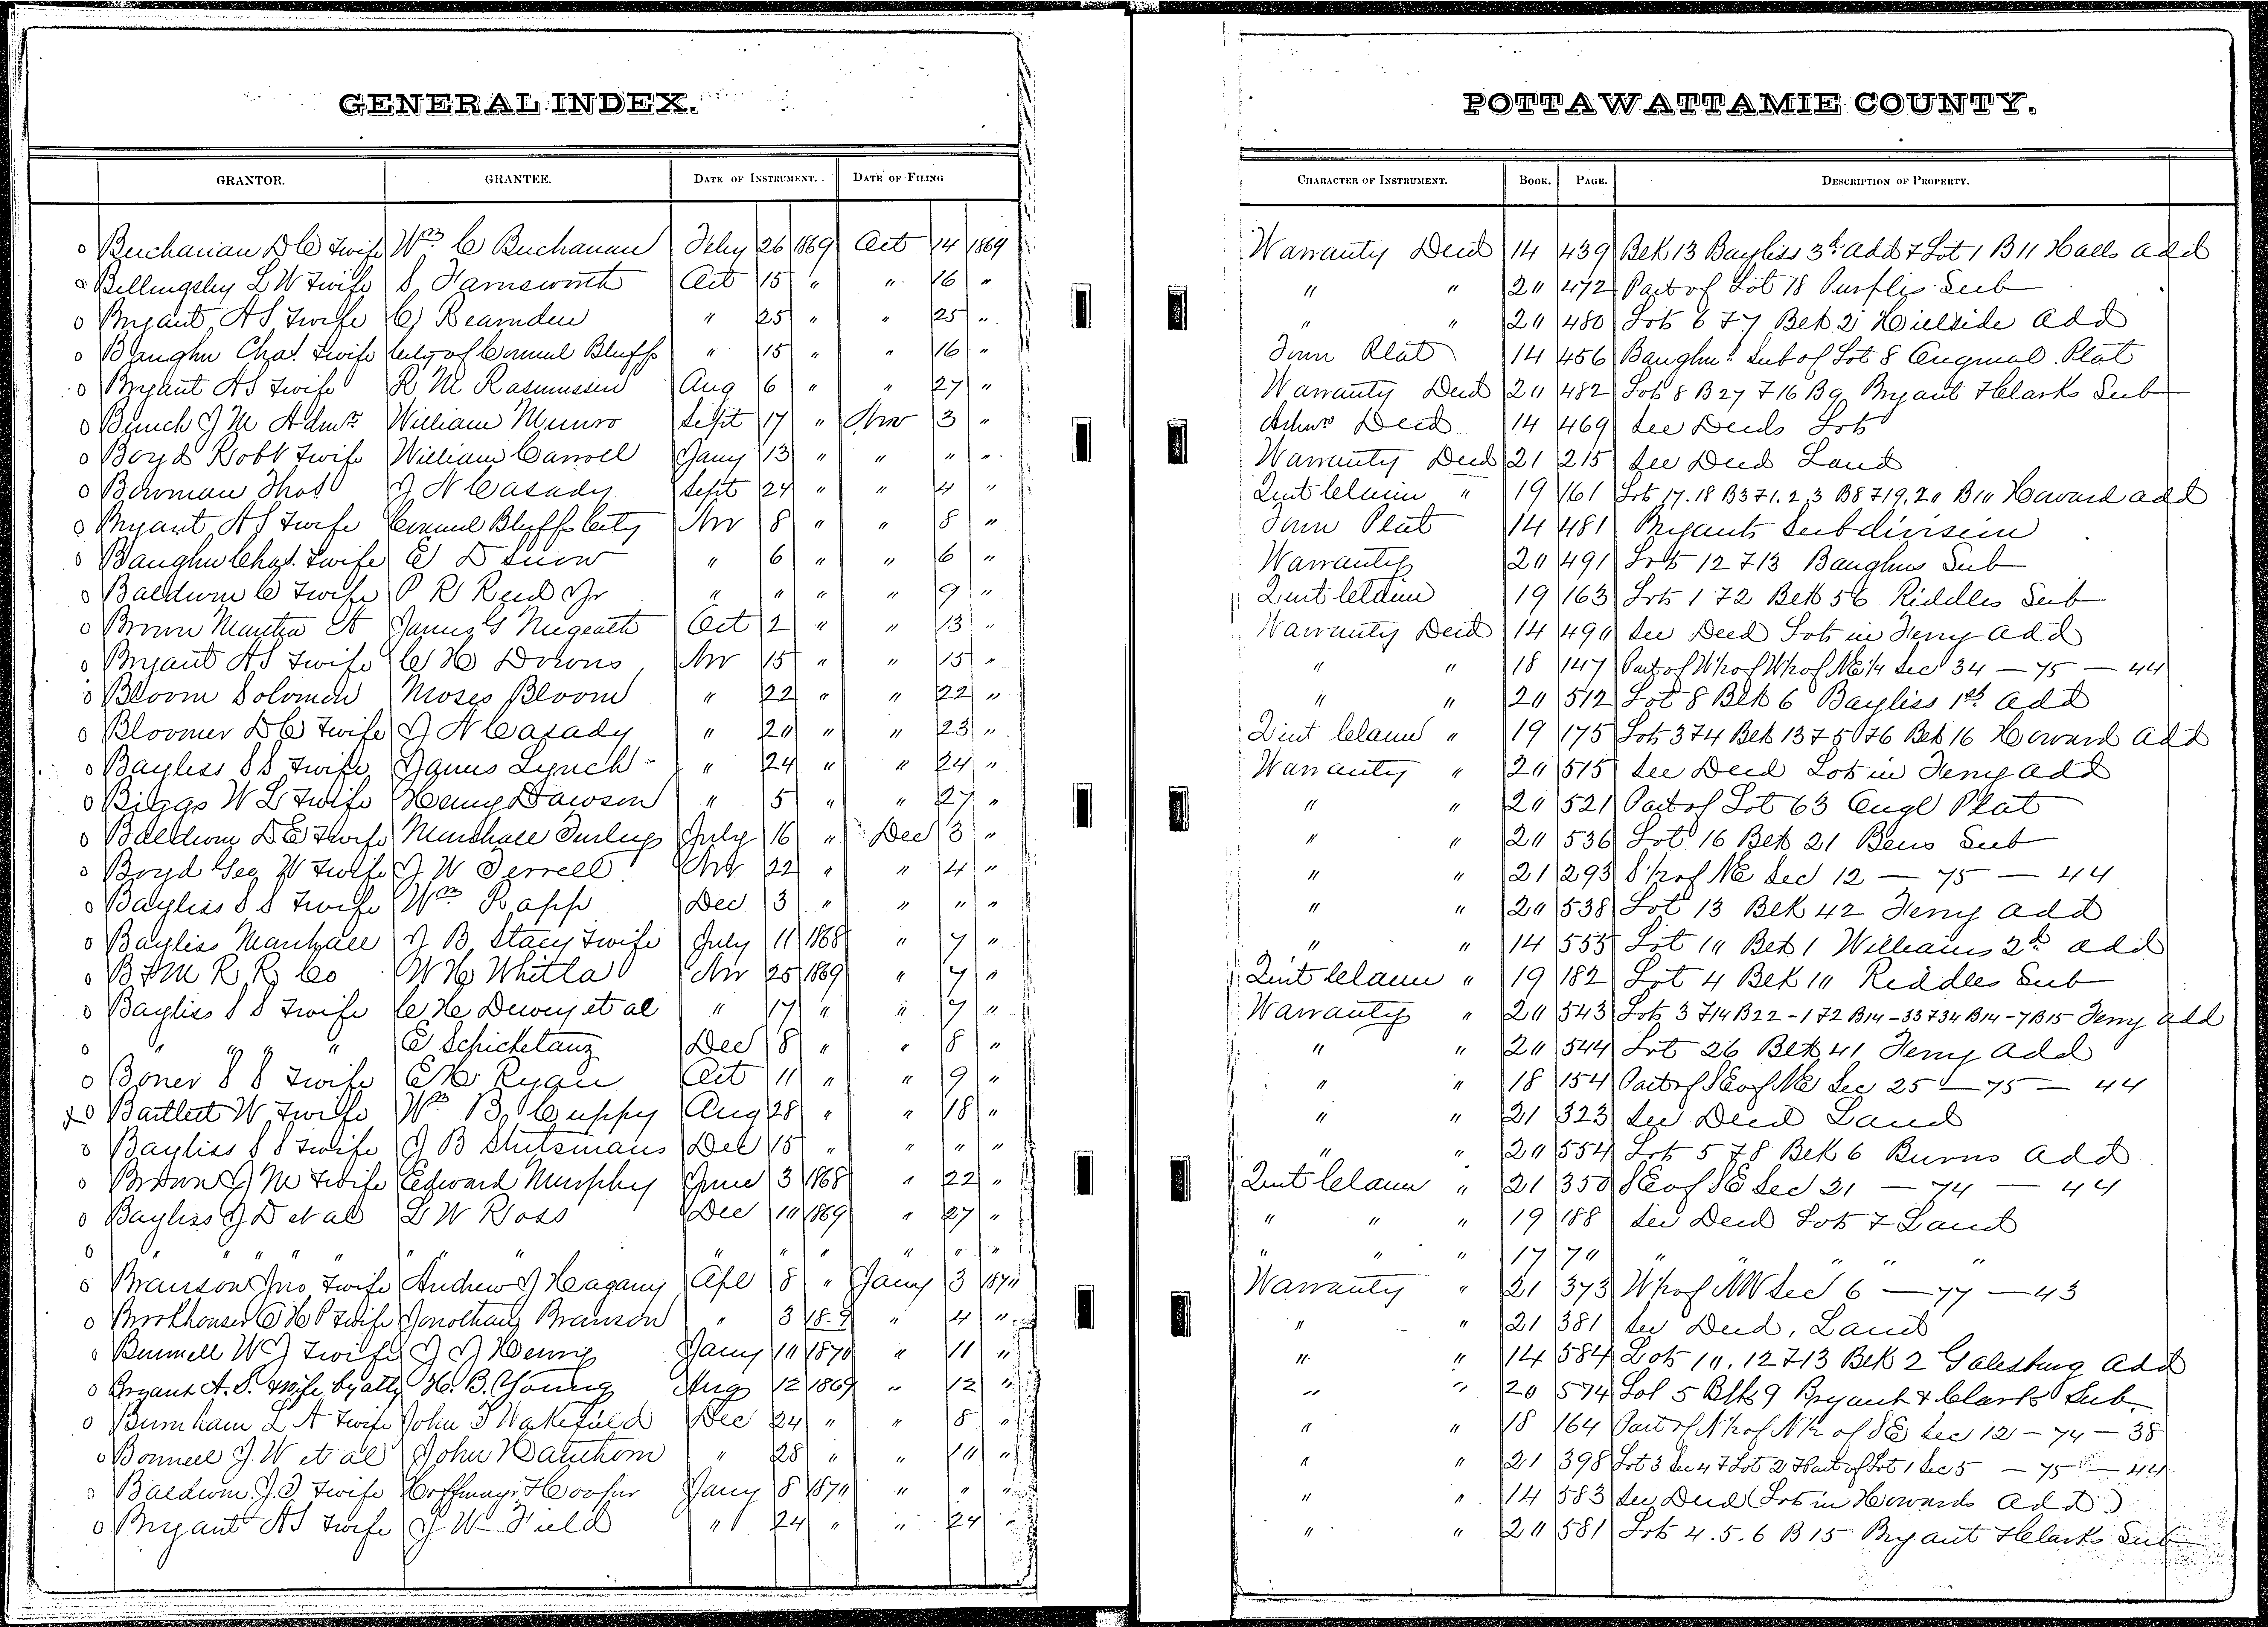 GENERAL INDEX.
GRANTOR. GRANTEE. DATE OF INSTRUMENT. DATE OF FILING
Buchanan D C & wife Wm C Buchanan Feby 26 1869 Oct 14 1869
Billingsley L W & wife S Farnsworth Oct 15 " " 16 "
Bryant A S & wife C J Bearnden " 25 " " 25 "
Baughn Chas. & wife City of Council Bluffs " 15 " " 16 "
Bryant A S & wife R M Rasmussen Aug 6 " " 27 "
Bunch J M Admr William Munro Sept 17 " Nov 3 "
Boyd Robt & wife William Carroll Jany 13 " " " "
Bowman Thos J N Casady Sept 24 " " 4 "
Bryant A S & wife Council Bluffs City Nov 8 " " 8 "
Baughn Chas. & wife E D Snow " 6 " " 6 "
Baldwin C & wife P R Reed Jr " " " " 9 "
Brown Martha A James G Megeath Oct 2 " " 13 "
Bryant A S & wife C H Downs Nov 15 " " 15 "
Bloom Solomon Moses Bloom " 22 " " 22 "
Bloomer D C & wife J N Casady " 20 " " 23 "
Bayliss S S & wife James Lynch " 24 " " 24 "
Biggs W L & wife Henry Dawson " 5 " " 27 "
Baldwin D E & wife Marshall Turley July 16 " Dec 3 "
Boyd Geo W & wife J W Terrell Nov 22 " " 4 "
Bayliss S S & wife Wm Rapp Dec 3 " " " "
Bayliss Marshall J B Stacy & wife July 11 1868 " 7 "
B & M R R Co W H Whitla Nov 25 1869 " 7 "
Bayliss S S & wife C H Dewey et al " 17 " " 7 "
" " " " E Schicketanz Dec 8 " " 8 "
Boner S S & wife E H Ryan Oct 11 " " 9 "
Bartlett W & wife Wm B Cuppy Aug 28 " " 18 "
Bayliss S S & wife J B Stutsmans Dec 15 " " " "
Brown J M & wife Edward Murphy June 3 1868 " 22 "
Bayliss J D et al L W Ross Dec 10 1869 " 27 "
" " " " " " " " " " " "
Branson Jno & wife Andrew J Hagany Apl 8 " Jany 3 1870
Brookhouser C H P & wife Jonothan Branson " 3 18.9 " 4 "
Bunnell W J & wife J J Henry Jany 10 1870 " 11 "
Bryant A. S. & wife by atty H. B. Young Aug 12 1869 " 12 "
Burnham L A & wife John T Wakefield Dec 24 " " 8 "
Bonnell J. W et al John Hauthorn " 28 " " 10 "
Baldwin J. T & wife Hoffmayr & Hooper Jany 8 1870 " " "
Bryant A S & wife J W Field " 24 " " 24 "
POTTAWATTAMIE COUNTY.
CHARACTER OF INSTRUMENT. BOOK. PAGE. DESCRIPTION OF PROPERTY.
Warranty Deed 14 439 Blk 13 Bayliss 3d Add & Lot 1 B 11 Halls Add
" " 20 472 Part of Lot 18 Purples Sub
" " 20 480 Lots 6 & 7 Blk 2 Hillside Add
Town Plat 14 456 Baughns Sub of Lot 8 Original Plat
Warranty Deed 20 482 Lots 8 B 27 & 16 B 9 Bryant & Clarks Sub
Admrs Deed 14 469 See Deeds Lots
Warranty Deed 21 215 See Deed Land
Quit Claim " 19 161 Lots 17.18 B 3 & 1.2.3 B 8 & 19.20 B 10 Howard Add
Town Plat 14 481 Bryants Subdivision
Warranty 20 491 Lots 12 & 13 Baughns Sub
Quit Claim 19 163 Lots 1 & 2 Blk 56 Riddles Sub
Warranty Deed 14 490 See Deed Lots in Ferry Add
" " 18 147 Part of W½ of W½ of NE¼ Sec 34 — 75 — 44
" " 20 512 Lot 8 Blk 6 Bayliss 1st Add
Quit Claim " 19 175 Lots 3 & 4 Blk 13 & 5 & 6 Blk 16 Howard Add
Warranty " 20 515 See Deed Lots in Ferry Add
" " 20 521 Part of Lot 63 Orgl Plat
" " 20 536 Lot 16 Blk 21 Beers Sub
" " 21 293 S½ of NE Sec 12 — 75 — 44
" " 20 538 Lot 13 Blk 42 Ferry Add
" " 14 555 Lot 10 Blk 1 Williams 2d Add
Quit Claim " 19 182 Lot 4 Blk 10 Riddles Sub
Warranty " 20 543 Lots 3 & 14 B 22 - 1 & 2 B 14 - 33 & 34 B 14 - 7 B 15 Ferry Add
" " 20 544 Lot 26 Blk 41 Ferry Add
" " 18 154 Part of SE of NE Sec 25 — 75 — 44
" " 21 323 See Deed Land
" " 20 554 Lots 5 & 8 Blk 6 Burns Add
Quit Claim " 21 350 SE of SE Sec 21 — 74 — 44
" " " 19 188 See Deed Lots & Land
" " " 17 70 " " " "
Warranty " 21 373 W½ of NW Sec 6 — 77 — 43
" " 21 381 See Deed, Land
" " 14 584 Lots 10. 12 & 13 Blk 2 Galesburg Add
" " 20 574 Lot 5 Blk 9 Bryant & Clarks Sub.
" " 18 164 Part of N½ of N½ of SE Sec 12 — 74 — 38
" " 21 398 Lot 3 Sec 4 & Lot 2 & Part of Lot 1 Sec 5 — 75 — 44
" " 14 583 See Deed (Lots in Howards Add)
" " 20 581 Lots 4. 5. 6 B 15 Bryant & Clarks Sub